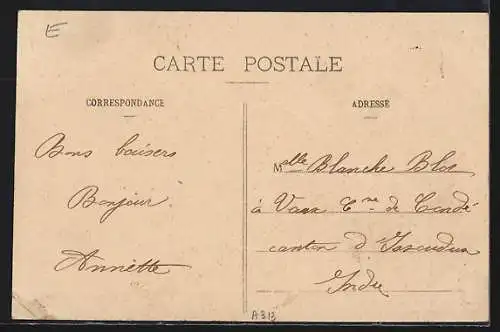 E
CARTE POSTALE
CORRESPONDANCE
ADRESSE
Bons baisers
Bonjour
Annette
Mlle Blanche Blot
à Vaux Cne de Condé
canton d'Issoudun
Indre
A313